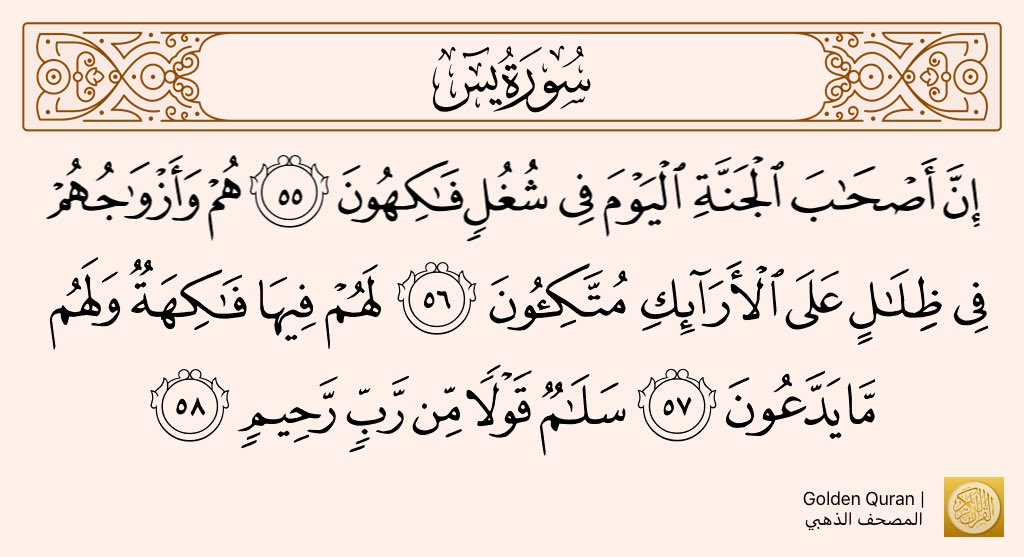 سُورَةُ يسٓ
إِنَّ أَصْحَٰبَ ٱلْجَنَّةِ ٱلْيَوْمَ فِى شُغُلٍ فَٰكِهُونَ ٥٥ هُمْ وَأَزْوَٰجُهُمْ
فِى ظِلَٰلٍ عَلَى ٱلْأَرَآئِكِ مُتَّكِـُٔونَ ٥٦ لَهُمْ فِيهَا فَٰكِهَةٌ وَلَهُم
مَّا يَدَّعُونَ ٥٧ سَلَٰمٌ قَوْلًا مِّن رَّبٍّ رَّحِيمٍ ٥٨
Golden Quran |
المصحف الذهبي